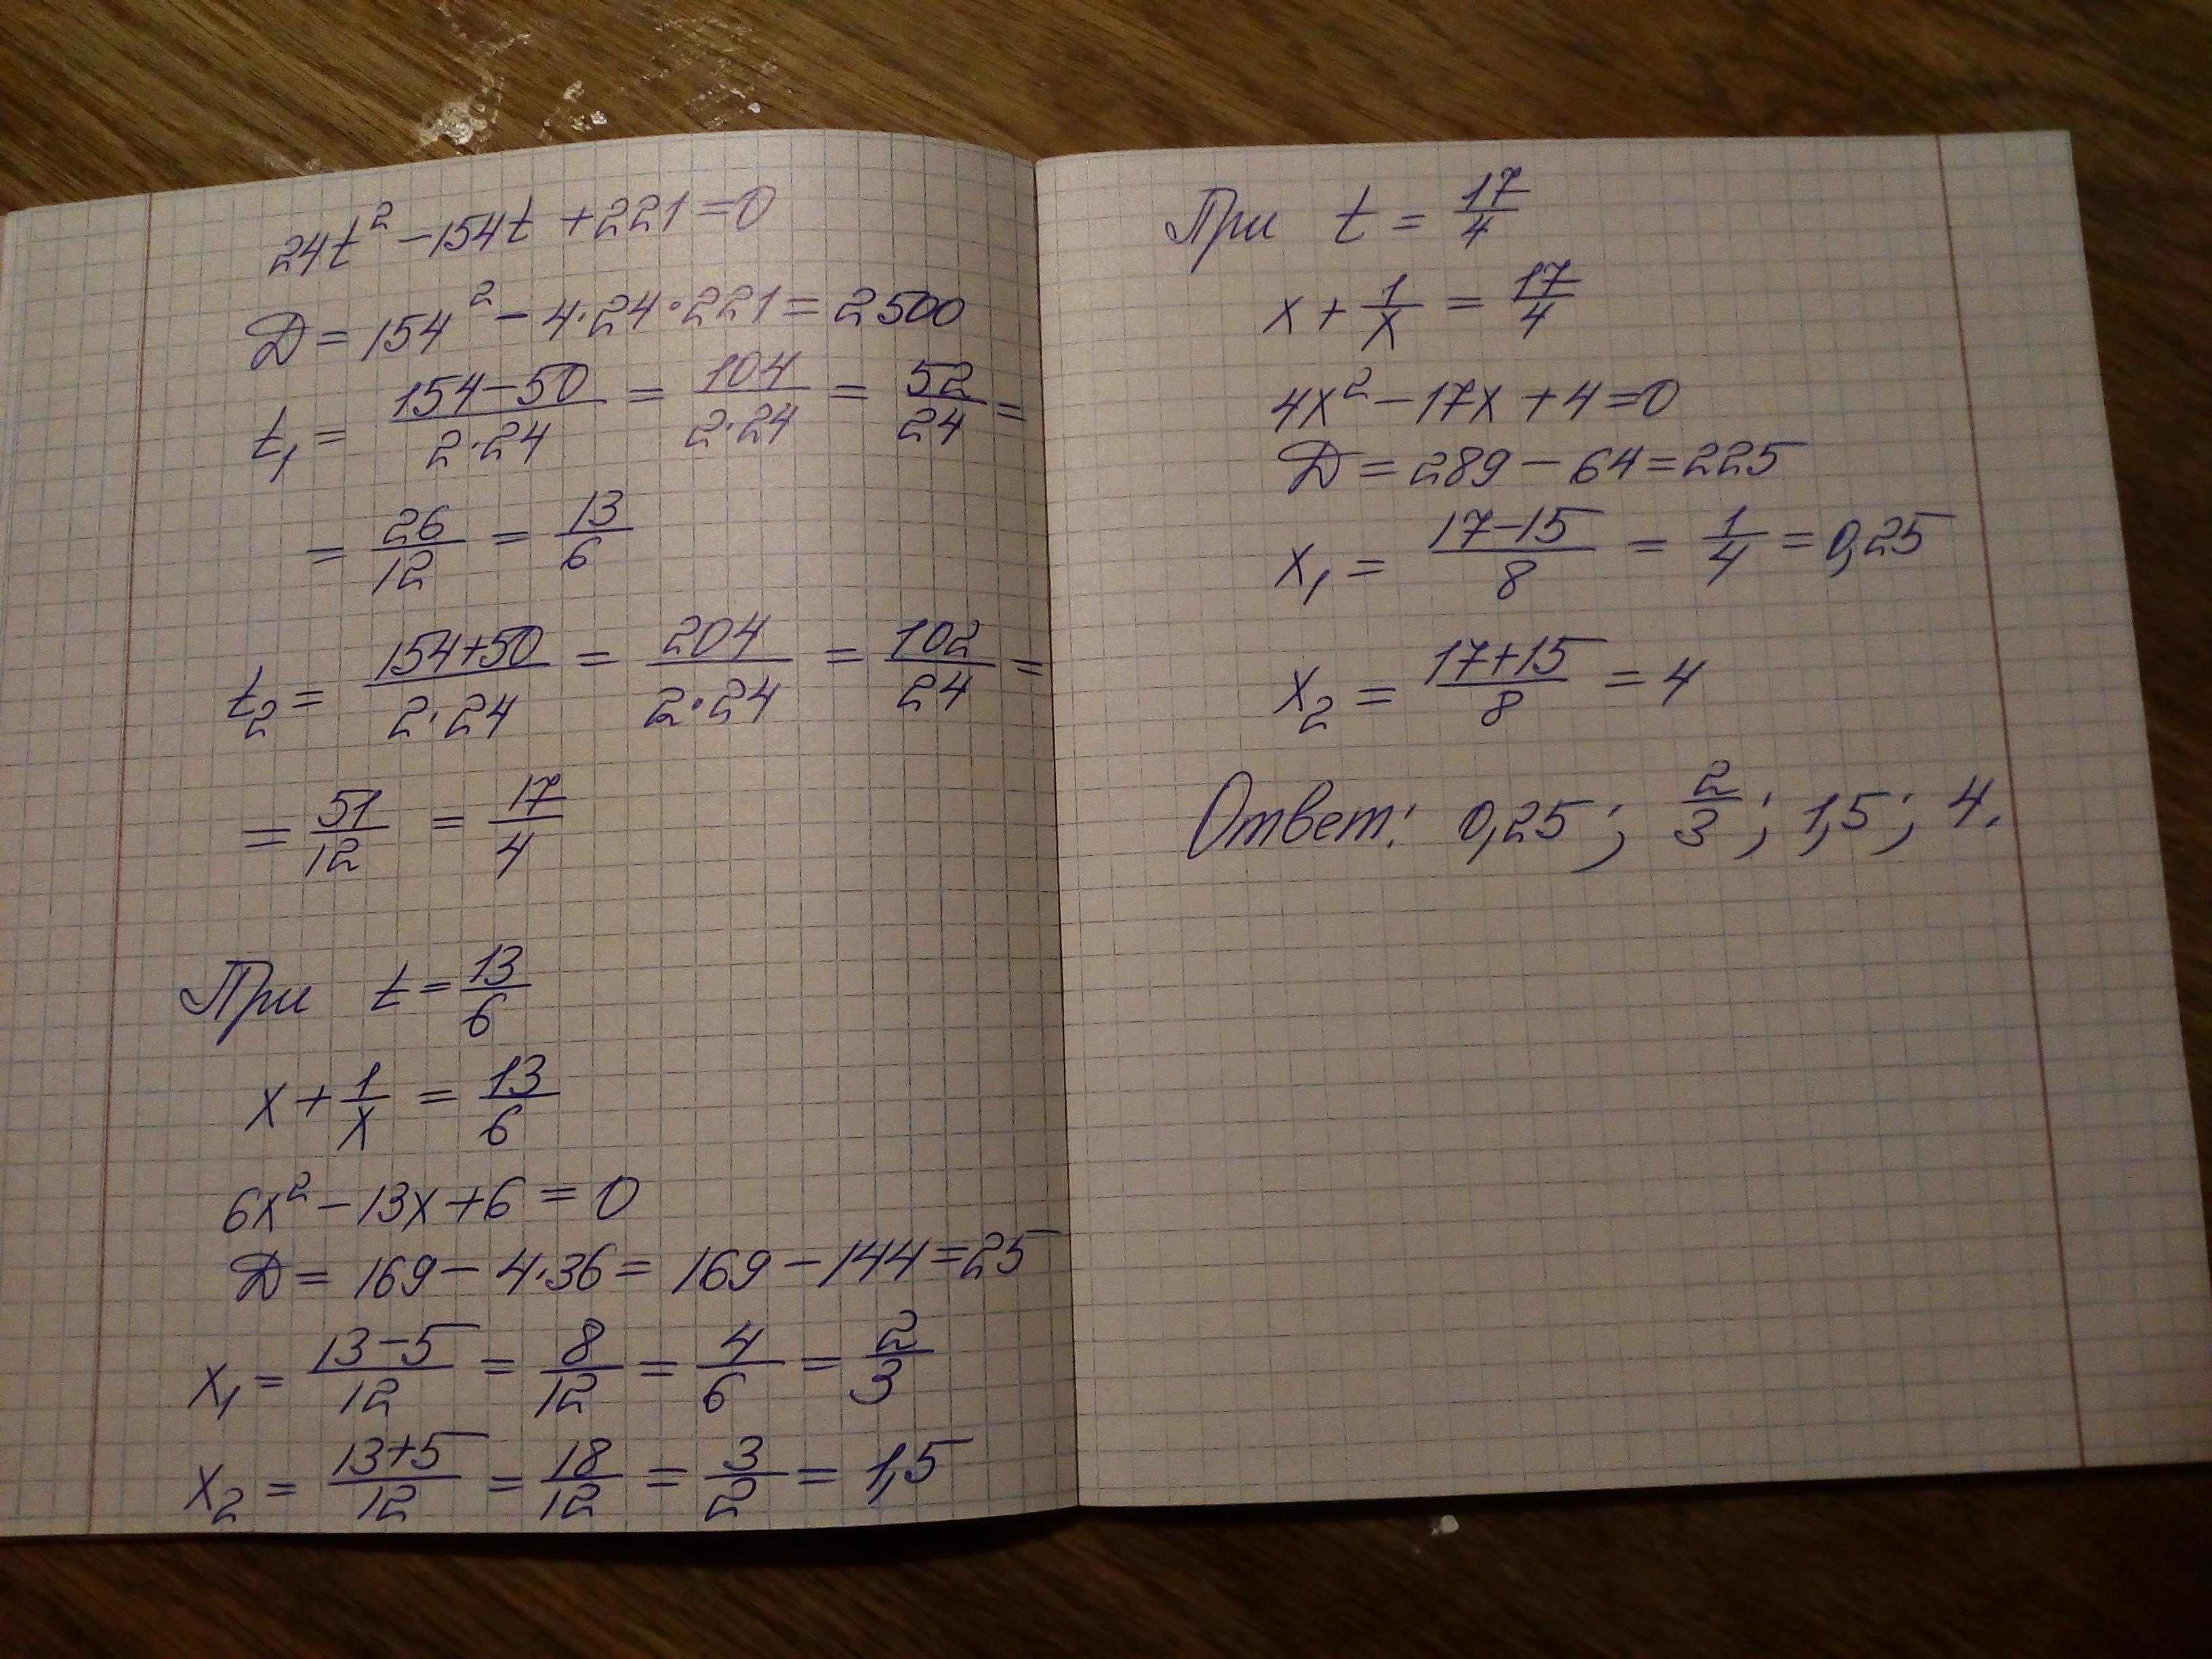 24t² - 154t + 221 = 0
D = 154² - 4·24·221 = 2500
t₁ = (154-50)/(2·24) = 104/(2·24) = 52/24 =
= 26/12 = 13/6
t₂ = (154+50)/(2·24) = 204/(2·24) = 102/24 =
= 51/12 = 17/4
При t = 13/6
x + 1/x = 13/6
6x² - 13x + 6 = 0
D = 169 - 4·36 = 169 - 144 = 25
x₁ = (13-5)/12 = 8/12 = 4/6 = 2/3
x₂ = (13+5)/12 = 18/12 = 3/2 = 1,5
При t = 17/4
x + 1/x = 17/4
4x² - 17x + 4 = 0
D = 289 - 64 = 225
x₁ = (17-15)/8 = 1/4 = 0,25
x₂ = (17+15)/8 = 4
Ответ: 0,25; 2/3; 1,5; 4.